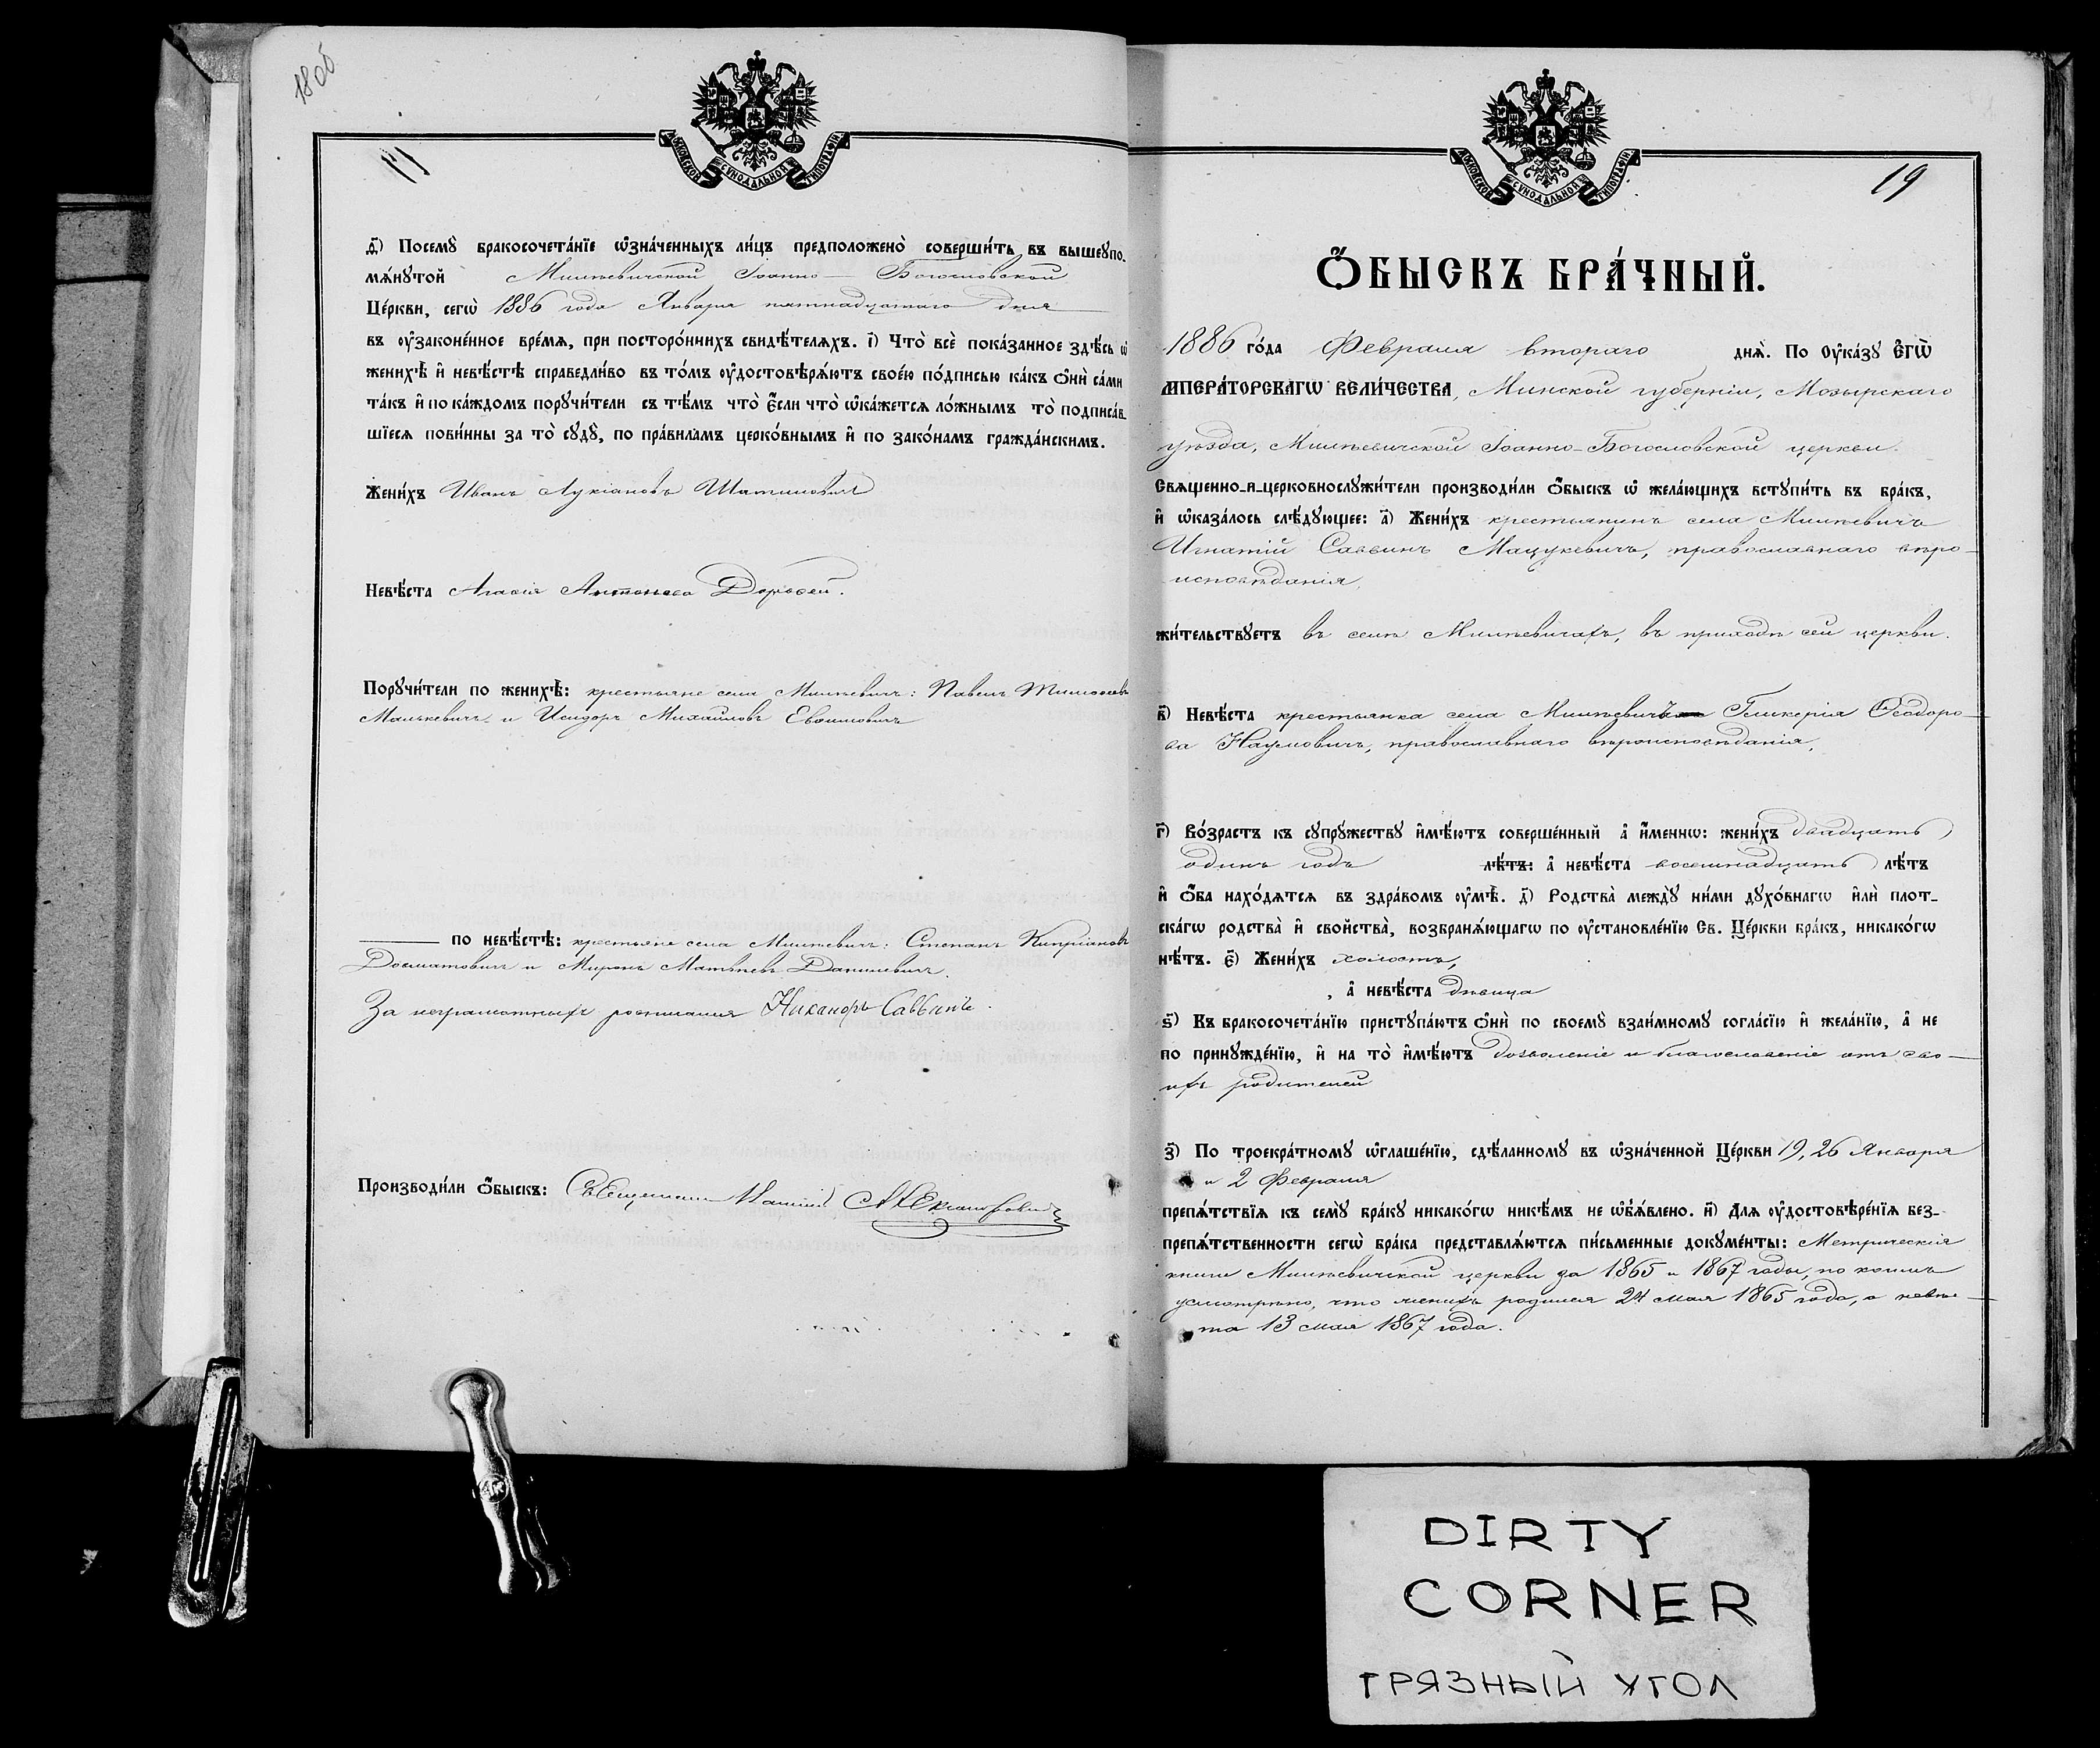 18об
11
МОСКОВСКОЙ СѴНОДАЛЬНОЙ ТИПОГРАФІИ
ѳ҃) Посемꙋ̀ бракосочета́нїе ѡ҆зна́ченныхъ ли́цъ предположено̀ соверши́ть въ вышеꙋпо-
мѧ́нꙋтой Милевичской Іоанно-Богословской
Це́ркви, сегѡ̀ 1886 года Января пятнадцатаго дня
въ ᲂу҆законе́нное вре́мѧ, при посторо́ннихъ свидѣ́телѧхъ. і҃) Что̀ всѐ пока́занное здѣ́сь ѡ҆
женихѣ̀ и҆ невѣ́стѣ справедли́во въ то́мъ ᲂу҆достовѣрѧ́ютъ свое́ю по́дписью ка́къ ѻ҆нѝ са́ми
та́къ и҆ по ка́ждомъ порꙋчи́тели съ тѣ́мъ что̀ є҆́сли что̀ ѡ҆ка́жетсѧ ло́жнымъ то̀ подписа́в-
шїесѧ пови́нны за то̀ сꙋдꙋ̀, по пра́виламъ церко́внымъ и҆ по зако́намъ гражда́нскимъ.
Жени́хъ Иванъ Лукіановъ
Невѣ́ста Агафія Антоньева
Порꙋчи́тели по женихѣ̀: крестьяне села Милевичъ: Павелъ Тимоѳеевъ
Малькевичъ и Исидоръ Михайловъ
по невѣ́стѣ: крестьяне села Милевичъ: Степанъ Кипріановъ
Досматовичъ и Миронъ Матвѣевъ Данилевичъ.
За неграмотныхъ росписался Никаноръ Саввинъ.
Производи́ли ѻ҆́быскъ: Священникъ Александровичъ
19
МОСКОВСКОЙ СѴНОДАЛЬНОЙ ТИПОГРАФІИ
Ѻ҆́БЫСКЪ БРА́ЧНЫЙ.
1886 го́да Февраля втораго днѧ̀. По ᲂу҆ка́зꙋ Є҆ГѠ̀
ИМПЕРА́ТОРСКАГѠ ВЕЛИ́ЧЕСТВА, Минской губерніи, Мозырскаго
уѣзда, Милевичской Іоанно-Богословской церкви.
Свѧщенно-и-церковнослꙋжи́тели производи́ли ѻ҆́быскъ ѡ҆ жела́ющихъ встꙋпи́ть въ бра́къ,
и҆ ѡ҆каза́лось слѣ́дꙋющее: а҃) Жени́хъ крестьянинъ села Милевичъ
Игнатій Саввинъ Мацукевичъ, православнаго вѣро-
исповѣданія,
жи́тельствꙋетъ въ селѣ Милевичахъ, въ приходѣ сей церкви.
в҃) Невѣ́ста крестьянка села Милевичъ Гликерія Ѳеодоро-
ва Наумовичъ, православнаго вѣроисповѣданія,
г҃) Во́зрастъ къ сꙋпрꙋ́жествꙋ и҆мѣ́ютъ соверше́нный а҆̀ и҆́меннѡ: жени́хъ двадцать
одинъ годъ лѣ́тъ: а҆̀ невѣ́ста восемнадцать лѣ́тъ
и҆ ѻ҆́ба нахо́дѧтсѧ въ здра́вомъ ᲂу҆мѣ̀. д҃) Родства̀ междꙋ̀ ни́ми дꙋхо́внагѡ и҆лѝ плот-
ска́гѡ родства̀ и҆ сво́йства̀, возбранѧ́ющагѡ по ᲂу҆становле́нїю Св. Це́ркви бра́къ, никако́гѡ
нѣ́тъ. є҃) Жени́хъ холостъ,
, а҆̀ невѣ́ста дѣвица
ѕ҃) Въ бракосочета́нїю пристꙋпа́ютъ ѻ҆нѝ по своемꙋ̀ взаи́мномꙋ согла́сїю и҆ жела́нїю, а҆̀ не
по принꙋжде́нїю, и҆ на то̀ и҆мѣ́ютъ дозволеніе и благословеніе отъ сво-
ихъ родителей
з҃) По троекра́тномꙋ ѡ҆глаше́нїю, сдѣ́ланномꙋ въ ѡ҆зна́ченной Це́ркви 19, 26 Января
и 2 Февраля
препѧ́тствїѧ къ семꙋ̀ бра́кꙋ никако́гѡ никѣ́мъ не ѡ҆б̾ѧ́влено. и҃) Длѧ ᲂу҆достовѣре́нїѧ без-
препѧ́тственности сегѡ̀ бра́ка представлѧ́ютсѧ пи́сьменные докꙋме́нты: Метрическія
книги Милевичской церкви за 1865 и 1867 годы, по коимъ
усмотрѣно, что женихъ родился 24 мая 1865 года, а невѣс-
та 13 мая 1867 года.
DIRTY
CORNER
ГРЯЗНЫЙ УГОЛ